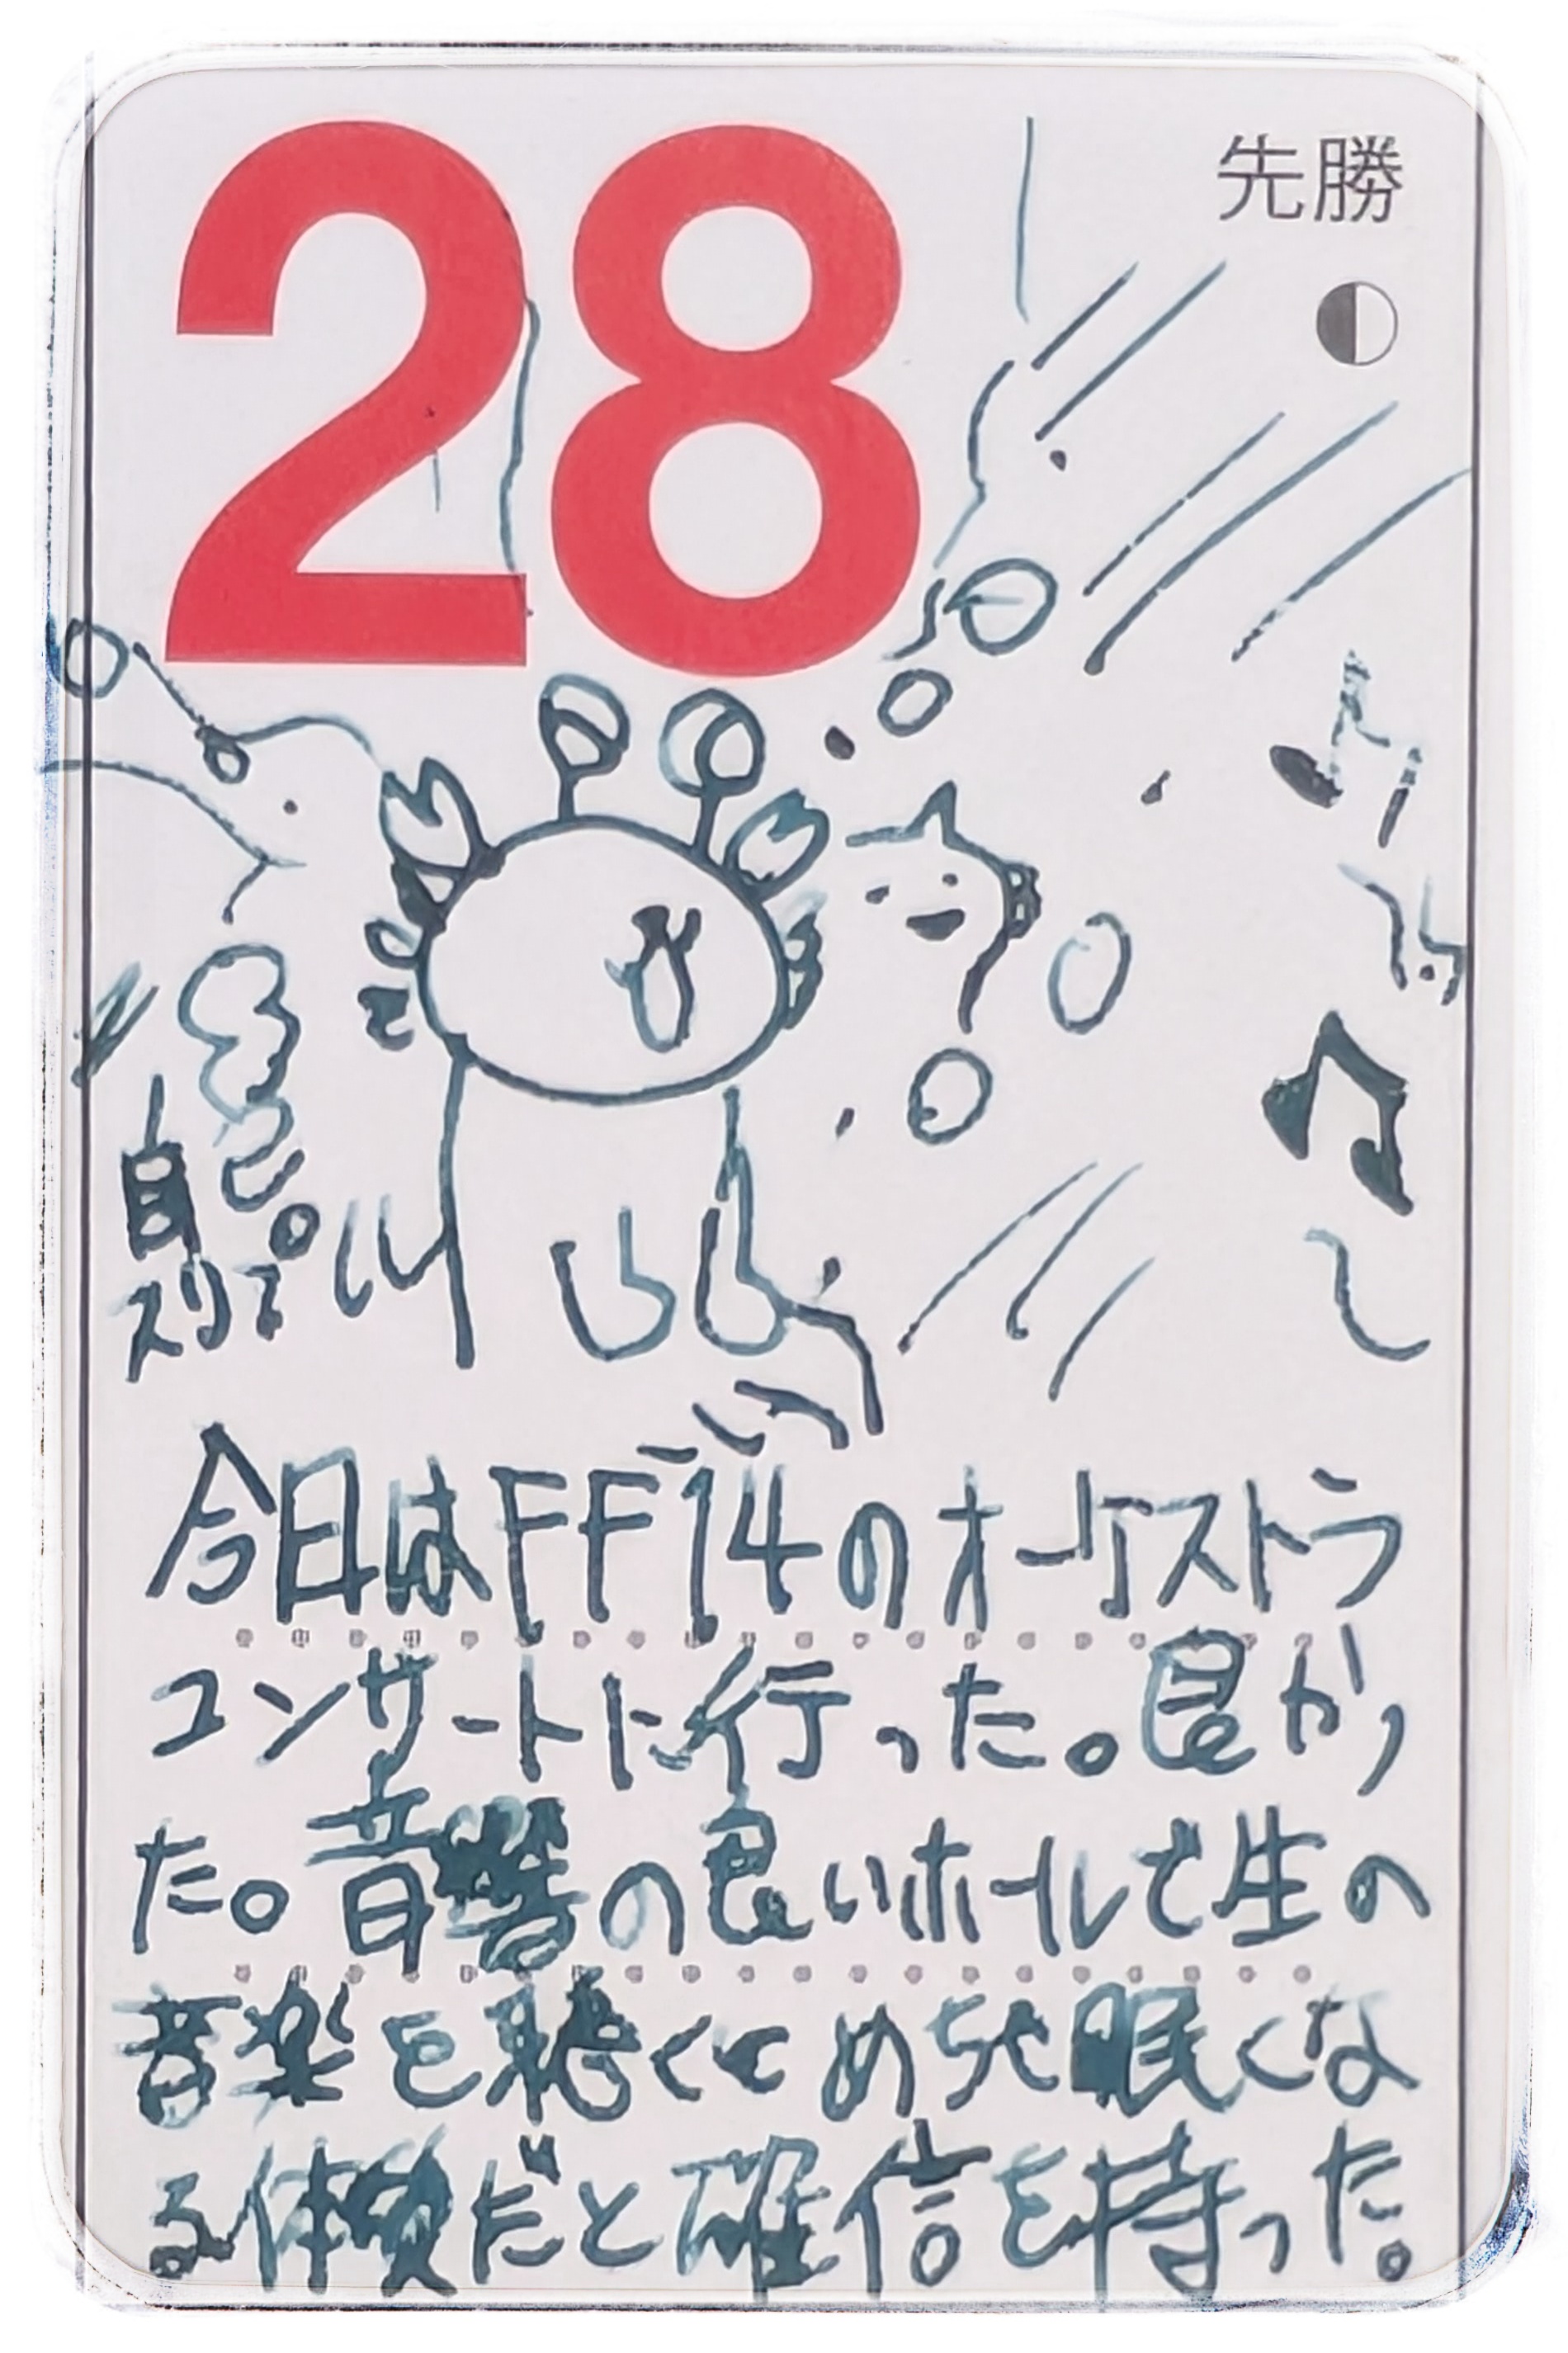 28
先勝
今日はFF14のオーケストラ
コンサートに行った。良かっ
た。音響の良いホールで生の
音楽を聴くとめちゃ眠くな
る体験だと確信を持った。